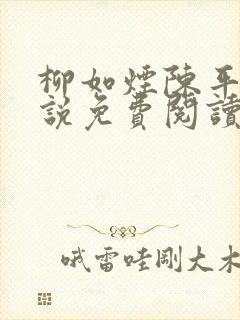 柳如煙陳平
說免費閱讀
哦雷哇剛大木